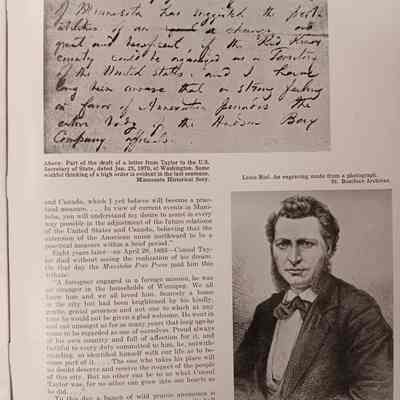 of Minnesota has suggested the
of an
great and beneficent, if the Red River
country could be organized as a Territory
of the United States, and I have
long been aware that a strong feeling
in favor of Annexation pervades the
entire body of the Hudson Bay
Company officials.
Above: Part of the draft of a letter from Taylor to the U.S.
Secretary of State, dated Jan. 25, 1870, at Washington. Some
wishful thinking of a high order is evident in the last sentence.
Minnesota Historical Socy.
Louis Riel. An engraving made from a photograph.
St. Boniface Archives.
and Canada, which I yet believe will become a prac-
tical measure. . . . In view of current events in Mani-
toba, you will understand my desire to assist in every
way possible in the adjustment of the future relations
of the United States and Canada, believing that the
extension of the American union northward to be a
practical measure within a brief period."
Eight years later—on April 28, 1893—Consul Tay-
lor died without seeing the realization of his dream.
On that day the Manitoba Free Press paid him this
tribute:
"A foreigner engaged in a foreign mission, he was
no stranger in the households of Winnipeg. We all
knew him and we all loved him. Scarcely a home
in the city but had been brightened by his kindly,
gentle, genial presence and not one to which at any
time he would not be given a glad welcome. He went in
and out amongst us for so many years that long ago he
came to be regarded as one of ourselves. Proud always
of his own country and full of affection for it, and
faithful to every duty committed to him, he, notwith-
standing, so identified himself with our life as to be-
come part of it. . . . The one who takes his place will
no doubt deserve and receive the respect of the people
of this city. But no other can be to us what Consul
Taylor was, for no other can grow into our hearts as
he did. . . .
To this day a bunch of wild prairie anemones is